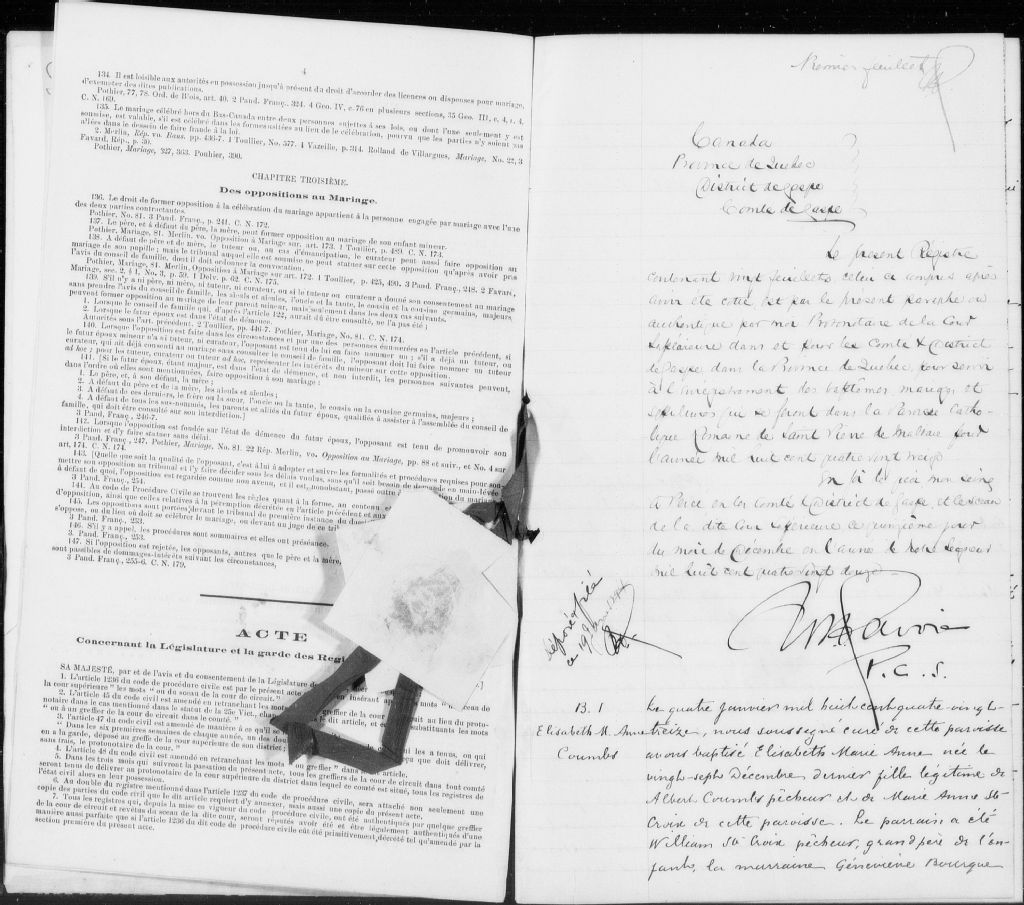 4
134. Il est loisible aux autorités en possession jusqu'à présent du droit d'accorder des licences ou dispenses pour mariage,
d'exempter des dites publications.
Pothier, 77, 78. Ord. de Blois, art. 40. 2 Pand. Franç., 324. 4 Geo. IV, c. 76 en plusieurs sections, 35 Geo. III, c. 4, s. 4,
C. N. 169.
135. Le mariage célébré hors du Bas-Canada entre deux personnes sujettes à ses lois, ou dont l'une seulement y est
soumise, est valable, s'il est célébré dans les formes usitées au lieu de la célébration, pourvu que les parties n'y soient pas
allées dans le dessein de faire fraude à la loi.
2. Merlin, Rép. vo. Bans. pp. 436-7. 1 Toullier, No. 577. 4 Vazeille, p. 314. Rolland de Villargues, Mariage, No. 22, 3
Favard, Rép., p. 39.
Pothier, Mariage, 327, 363. Pouhier, 390.
CHAPITRE TROISIÈME.
Des oppositions au Mariage.
136. Le droit de former opposition à la célébration du mariage appartient à la personne engagée par mariage avec l'une
des deux parties contractantes.
Pothier, No. 81. 3 Pand. Franç., p. 241. C. N. 172.
137. Le père, et à défaut du père, la mère, peut former opposition au mariage de son enfant mineur.
Pothier, Mariage, 81. Merlin, vo. Opposition à Mariage sur. art. 173. 1 Toullier, p. 489. C. N. 173.
138. A défaut de père et de mère, le tuteur ou, au cas d'émancipation, le curateur peut aussi faire opposition au
mariage de son pupille; mais le tribunal auquel elle est soumise ne peut statuer sur cette opposition qu'après avoir pris
l'avis du conseil de famille, dont il doit ordonner la convocation.
Pothier, Mariage, 81. Merlin, Opposition à Mariage sur art. 172. 1 Toullier, p. 425, 490. 3 Pand. Franç., 248. 2 Favart,
Mariage, sec. 2, § 1, No. 3, p. 59. 1 Delv. p. 62. C. N. 175.
139. S'il n'y a ni père, ni mère, ni tuteur, ni curateur, ou si le tuteur ou curateur a donné son consentement au mariage
sans prendre l'avis du conseil de famille, les aïeuls et aïeules, l'oncle et la tante, le cousin et la cousine germains, majeurs,
peuvent former opposition au mariage de leur parent mineur, mais seulement dans les deux cas suivants.
1. Lorsque le conseil de famille qui, d'après l'article 122, aurait dû être consulté, ne l'a pas été;
2. Lorsque le futur époux est dans l'état de démence.
Autorités sous l'art. précédent. 2 Toullier, pp. 446-7. Pothier, Mariage, No. 81. C. N. 174.
140. Lorsque l'opposition est faite dans les circonstances et par une des personnes énumérées en l'article précédent, si
le futur époux mineur n'a ni tuteur, ni curateur, l'opposant est tenu de lui en faire nommer un; s'il a déjà un tuteur, ou
curateur, qui ait déjà consenti au mariage sans consulter le conseil de famille, l'opposant doit lui faire nommer un tuteur
ad hoc; pour les tuteur, curateur ou tuteur ad hoc, représenter les intérêts du mineur sur cette opposition.
141. [Si le futur époux, étant majeur, est dans l'état de démence, et non interdit, les personnes suivantes peuvent,
dans l'ordre où elles sont mentionnées, faire opposition à son mariage:
1. Le père, et, à son défaut, la mère;
2. A défaut du père et de la mère, les aïeuls et aïeules;
3. A défaut de ces derniers, le frère ou la sœur, l'oncle ou la tante, le cousin ou la cousine germains, majeurs;
4. A défaut de tous les sus-nommés, les parents et alliés du futur époux, qualifiés à assister à l'assemblée du conseil de
famille, qui doit être consulté sur son interdiction.]
3 Pand. Franç., 246-7.
142. Lorsque l'opposition est fondée sur l'état de démence du futur époux, l'opposant est tenu de promouvoir son
interdiction et d'y faire statuer sans délai.
3 Pand. Franç., 247. Pothier, Mariage, No. 81. 22 Rép. Merlin, vo. Opposition au Mariage, pp. 88 et suiv., et No. 4 sur
art. 174. C. N. 174.
143. [Quelle que soit la qualité de l'opposant, c'est à lui à adopter et suivre les formalités et procédures requises pour sou-
mettre son opposition au tribunal et l'y faire décider sous les délais voulus, sans qu'il soit besoin de demande en main-levée
à défaut de quoi, l'opposition est regardée comme non avenue, et il est, nonobstant, passé outre
3 Pand. Franç., 254.
144. Au code de Procédure Civile se trouvent les règles quant à la forme, au contenu et
d'opposition, ainsi que celles relatives à la péremption décrétée en l'article précédent et aux
145. Les oppositions sont portées devant le tribunal de première instance du dom
s'oppose, ou du lieu où doit se célébrer le mariage, ou devant un juge de ce tri
3 Pand. Franç., 253.
146. S'il y a appel, les procédures sont sommaires et elles ont préséance.
3. Pand. Franç., 253.
147. Si l'opposition est rejetée, les opposants, autres que le père et la mère,
sont passibles de dommages-intérêts suivant les circonstances,
3 Pand. Franç., 255-6. C. N. 179.
ACTE
Concernant la Législature et la garde des Regi
SA MAJESTÉ, par et de l'avis et du consentement de la Législature
1. L'article 1236 du code de procédure civile est par le présent acte
la cour supérieure" les mots "ou du sceau de la cour de circuit."
2. L'article 45 du code civil est amendé en retranchant les mots
notaire dans le cas mentionné dans le statut de la 25e Vict., cha
"ou à un greffier de la cour de circuit dans le comté."
3. l'article 47 du code civil est amendé de manière à ce qu'il se
"Dans les six premières semaines de chaque année,
en a la garde, déposé au greffe de la cour supérieure de son district;
sans frais, le protonotaire de la cour."
4. L'article 48 du code civil est amendé en retranchant les mots
5. Dans les trois mois qui suivront la passation du présent acte, tous les greffiers de la cour de circuit dans tout comté
seront tenus de délivrer au protonotaire de la cour supérieure du district dans lequel ce comté est situé, tous les registres de
l'état civil alors en leur possession.
6. Au double du registre mentionné dans l'article 1237 du code de procédure civile, sera attaché non seulement une
copie des parties du code civil que le dit article requiert d'y annexer, mais aussi une copie du présent acte.
7. Tous les registres qui, depuis la mise en vigueur du code de procédure civile, ont été authentiqués par quelque greffier
de la cour de circuit et revêtus du sceau de la dite cour, seront réputés avoir été et être légalement authentiqués d'une
manière aussi parfaite que si l'article 1236 du dit code de procédure civile eût été primitivement décrété tel qu'amendé par la
section première du présent acte.
Premier feuillet
Canada
Province de Quebec
District de Gaspé
Comté de Gaspé
Le présent Régistre
contenant vingt feuillets, celui ci compris après
avoir été coté est par le présent paraphé ou
authentiqué par moi Protonotaire de la Cour
Supérieure dans et pour les Comté & District
de Gaspé dans la Province de Quebec, pour servir
à l'enregistrement des baptêmes, mariages et
sépultures qui se feront dans la Paroisse Catho-
lique Romaine de Saint Pierre de Malbaie pour
l'année mil huit cent quatre vingt treize
En foi de quoi mon seing
à Percé en les Comté & District de Gaspé, et le sceau
de la dite Cour Supérieure ce quinzième jour
du mois de Décembre en l'année de Notre Seigneur
mil huit cent quatre vingt douze
P. C. S.
Déposé & filé
B. 1
Elisabeth M. Anne
Coumbs
Le quatre janvier mil huit cent quatre-vingt-
treize, nous soussigné curé de cette paroisse
avons baptisé Elisabeth Marie Anne née le
vingt-sept Décembre dernier fille légitime de
Albert Coumbs pêcheur et de Marie Anne St-
Croix de cette paroisse. Le parrain a été
William St-Croix pêcheur, grand père de l'en-
fants, la marraine Géneviève Bourque